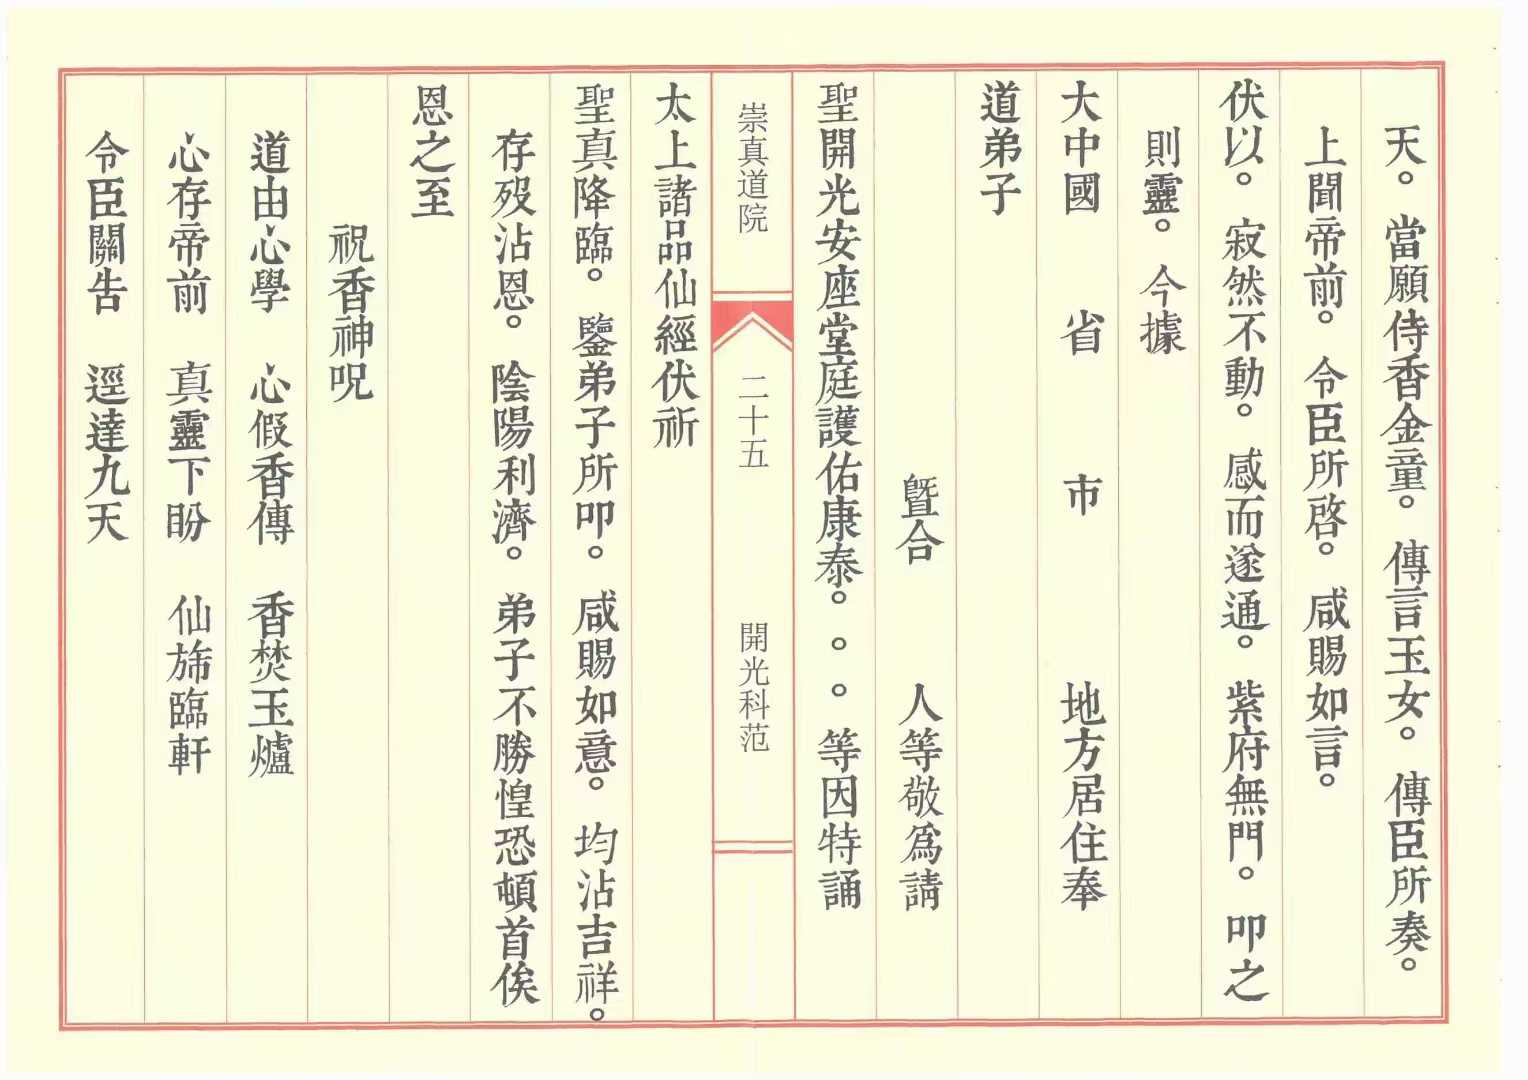 天。當願侍香金童。傳言玉女。傳臣所奏。
上聞帝前。令臣所啓。咸賜如言。
伏以。寂然不動。感而遂通。紫府無門。叩之
則靈。今據
大中國 省 市 地方居住奉
道弟子
暨合 人等敬爲請
聖開光安座堂庭護佑康泰。。。等因特誦
崇真道院 二十五 開光科范
太上諸品仙經伏祈
聖真降臨。鑒弟子所叩。咸賜如意。均沾吉祥。
存歿沾恩。陰陽利濟。弟子不勝惶恐頓首俟
恩之至
祝香神呪
道由心學 心假香傳 香焚玉爐
心存帝前 真靈下盼 仙旆臨軒
令臣關告 逕達九天